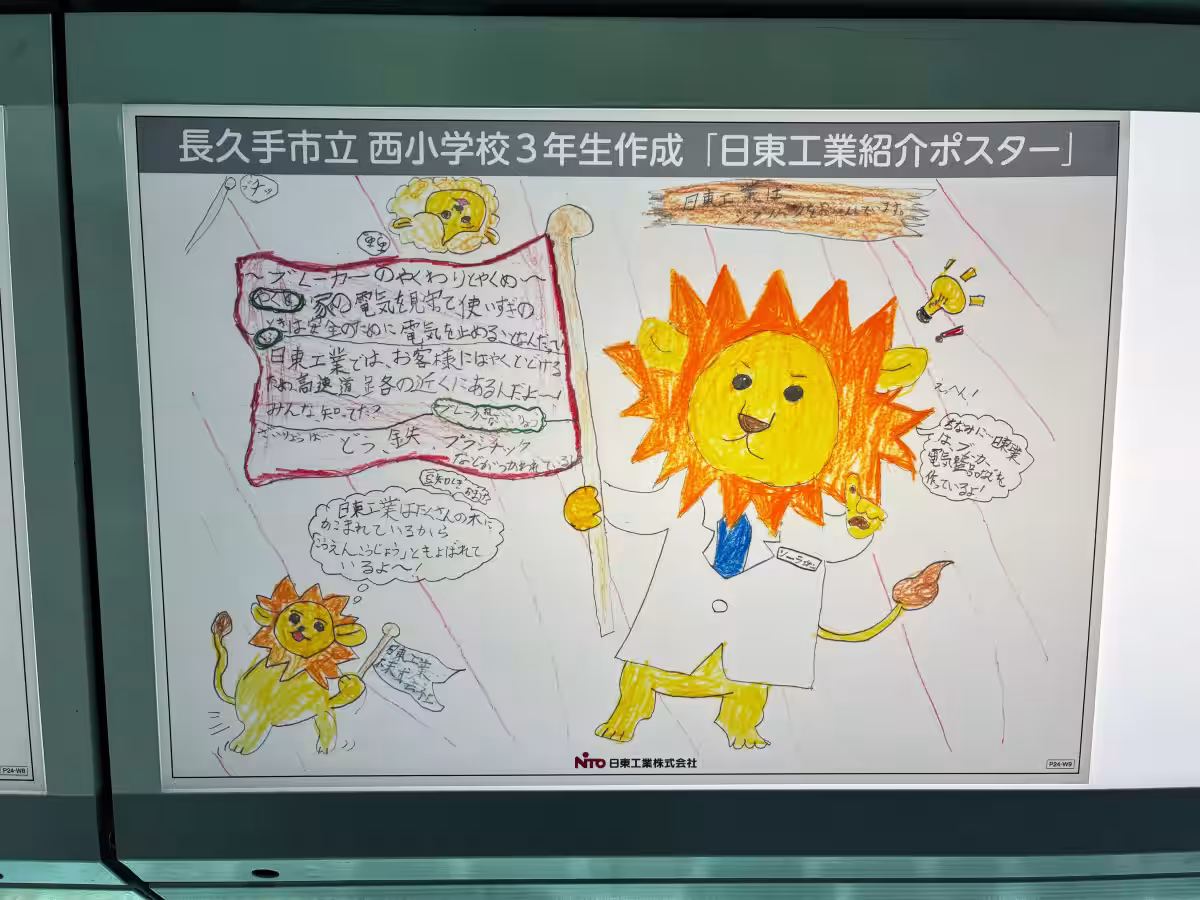 長久手市立 西小学校3年生作成 「日東工業紹介ポスター」
日東工業は
～ブレーカーのやくわりとやくめ～
家の電気を見守て使いすぎの
ときは安全のために電気を止めることなんだて
日東工業では、お客様にはやくとどける
ため高速道路の近くにあるんだよ～!
みんな、知ってた?
ざいりょうは…どう、鉄、プラスチック
などがつかわれている!
豆知しき
日東工業はたくさんの木に
かこまれているから
「こうえんこうじょう」ともよばれて
いるよ～!
日東工業
株式会社
えっへん!
ちなみに…日東工業
は、ブレーカー、
電気
作っているよ!
NITO 日東工業株式会社
P24-W8
P24-W9